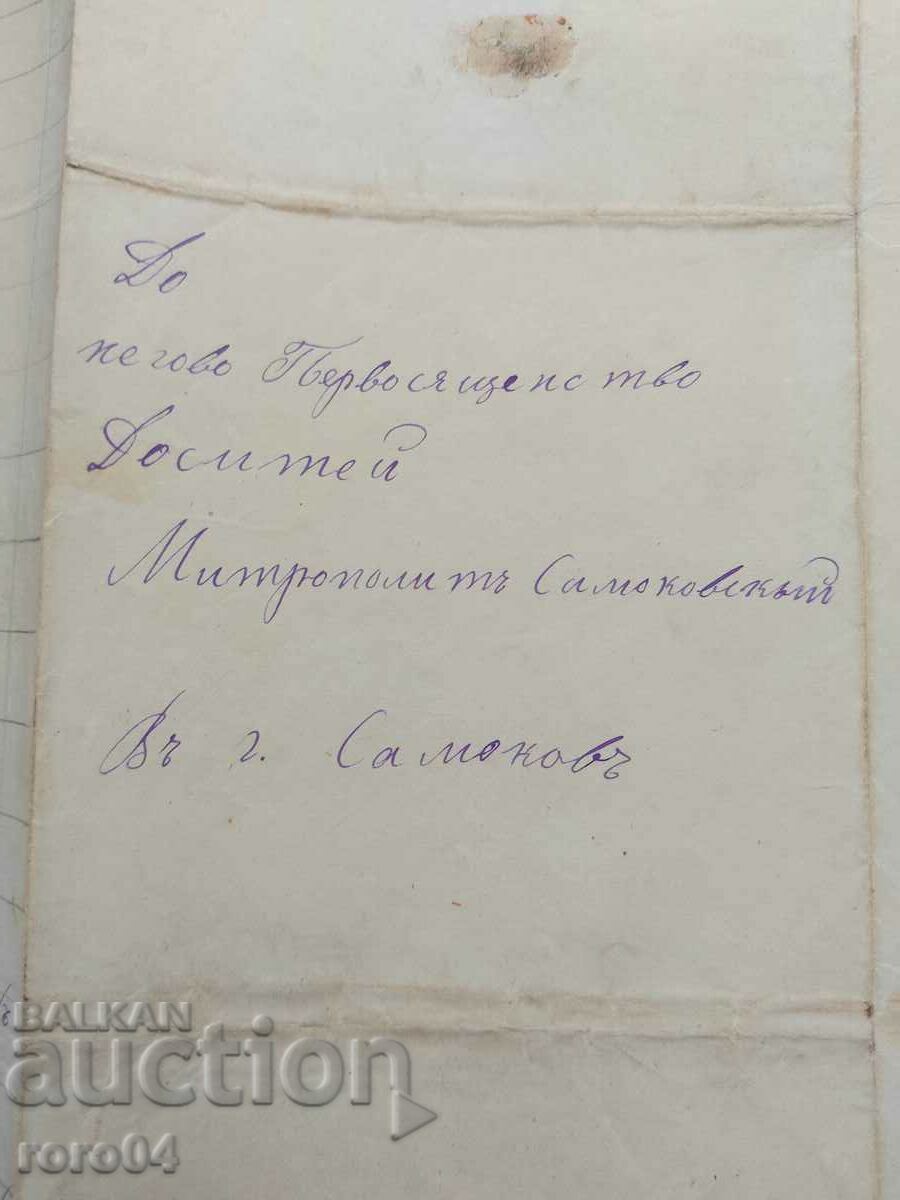 До
негово Пьервосященство
Доситей
Митрополитъ Самоковскый
Въ г. Самоковъ
BALKAN
auction
roro04